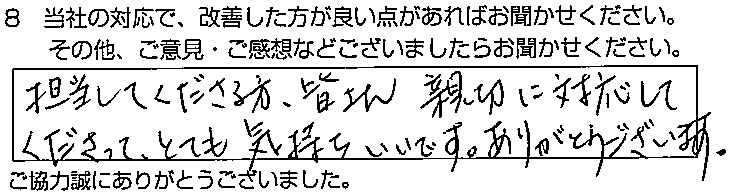 8 当社の対応で、改善した方が良い点があればお聞かせください。
その他、ご意見・ご感想などございましたらお聞かせください。
担当してくださる方、皆さん 親切に対応して
くださって、とても気持ちいいです。ありがとうございます。
ご協力誠にありがとうございました。